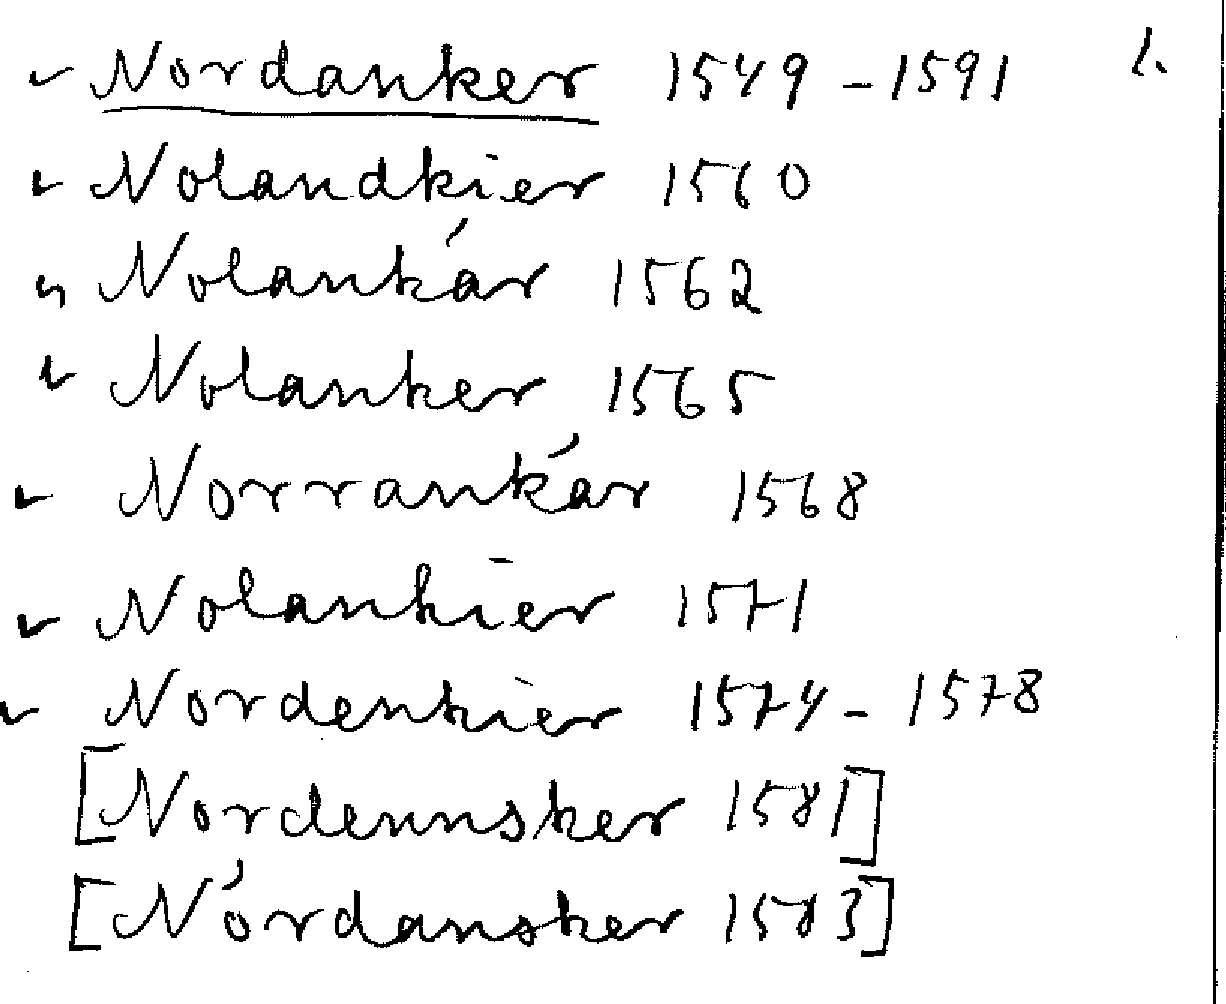 Nordanker 1549 - 1591 1.
Nolandkier 1560
Nolankár 1562
Nolanker 1565
Norrankár 1568
Nolankier 1571
Nordenkier 1574 - 1578
[Nordennsker 1581]
[Nórdansker 1583]